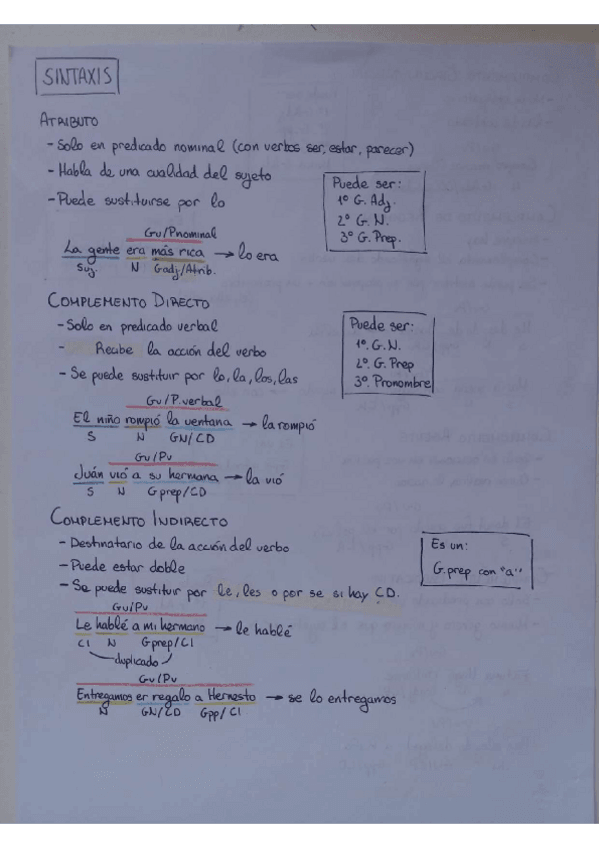 SINTAXIS
ATRIBUTO
- Solo en predicado nominal (con verbos ser, estar, parecer)
- Habla de una cualidad del sujeto
- Puede sustituirse por lo
Puede ser:
1º G. Adj.
2º G. N.
3º G. Prep.
Gv/Pnominal
La gente era más rica → lo era
Suj. N Gadj/Atrib.
COMPLEMENTO DIRECTO
- Solo en predicado verbal
- Recibe la acción del verbo
- Se puede sustituir por lo, la, los, las
Puede ser:
1º. G.N.
2º. G. Prep
3º. Pronombre
Gv/P.verbal
El niño rompió la ventana → la rompió
S N GN/CD
Gv/Pv
Juán vió a su hermana → la vió
S N Gprep/CD
COMPLEMENTO INDIRECTO
- Destinatario de la acción del verbo
- Puede estar doble
- Se puede sustituir por le, les o por se si hay CD.
Es un:
G.prep con "a"
Gv/Pv
Le hablé a mi hermano → le hablé
CI N Gprep/CI
duplicado
Gv/Pv
Entregamos er regalo a Hernesto → se lo entregamos
N GN/CD Gpp/CI